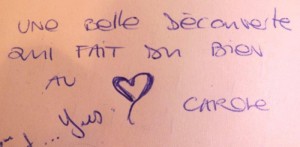 UNE BELLE DÉCOUVERTE
QUI FAIT DU BIEN
AU
CAROLE